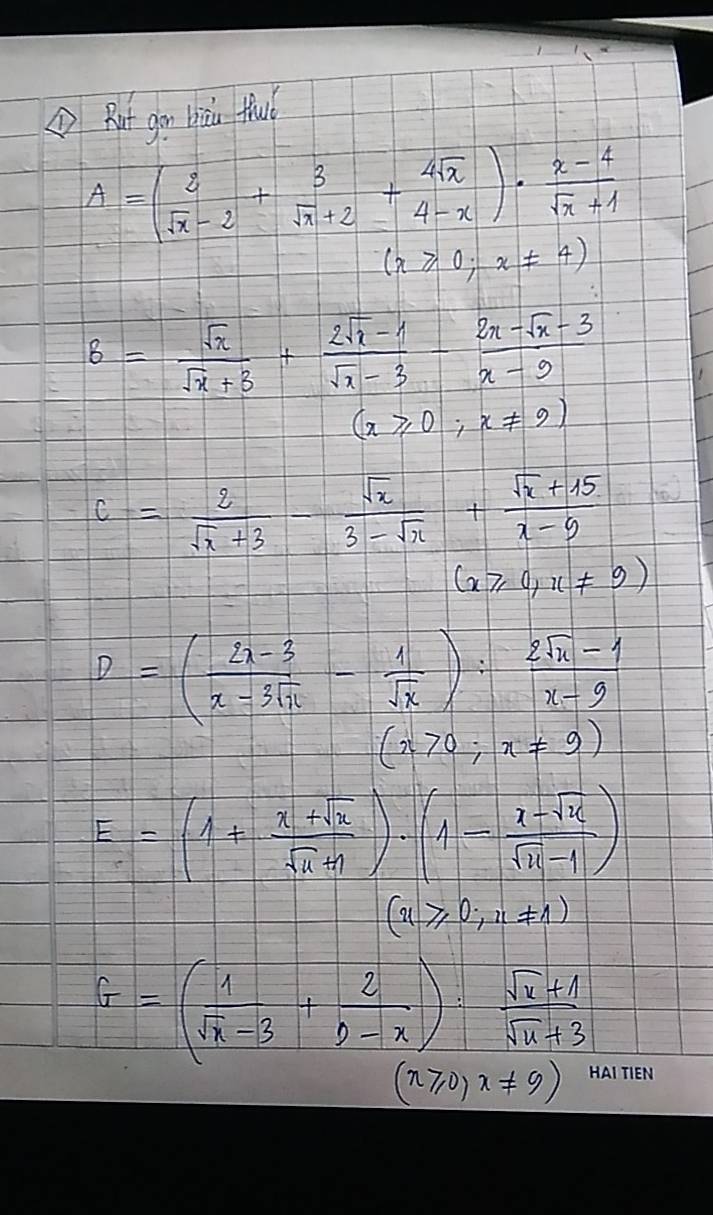 ① Rút gọn biểu thức
A = (2/(√x − 2) + 3/(√x + 2) + 4√x/(4 − x)) · (x − 4)/(√x + 1)
(x ⩾ 0; x ≠ 4)
B = √x/(√x + 3) + (2√x − 1)/(√x − 3) − (2x − √x − 3)/(x − 9)
(x ⩾ 0; x ≠ 9)
C = 2/(√x + 3) − √x/(3 − √x) + (√x + 15)/(x − 9)
(x ⩾ 0, x ≠ 9)
D = ((2x − 3)/(x − 3√x) − 1/√x) : (2√x − 1)/(x − 9)
(x > 0; x ≠ 9)
E = (1 + (x + √x)/(√x + 1)) · (1 − (x − √x)/(√x − 1))
(x ⩾ 0; x ≠ 1)
G = (1/(√x − 3) + 2/(9 − x)) : (√x + 1)/(√x + 3)
(x ⩾ 0, x ≠ 9) HAI TIEN